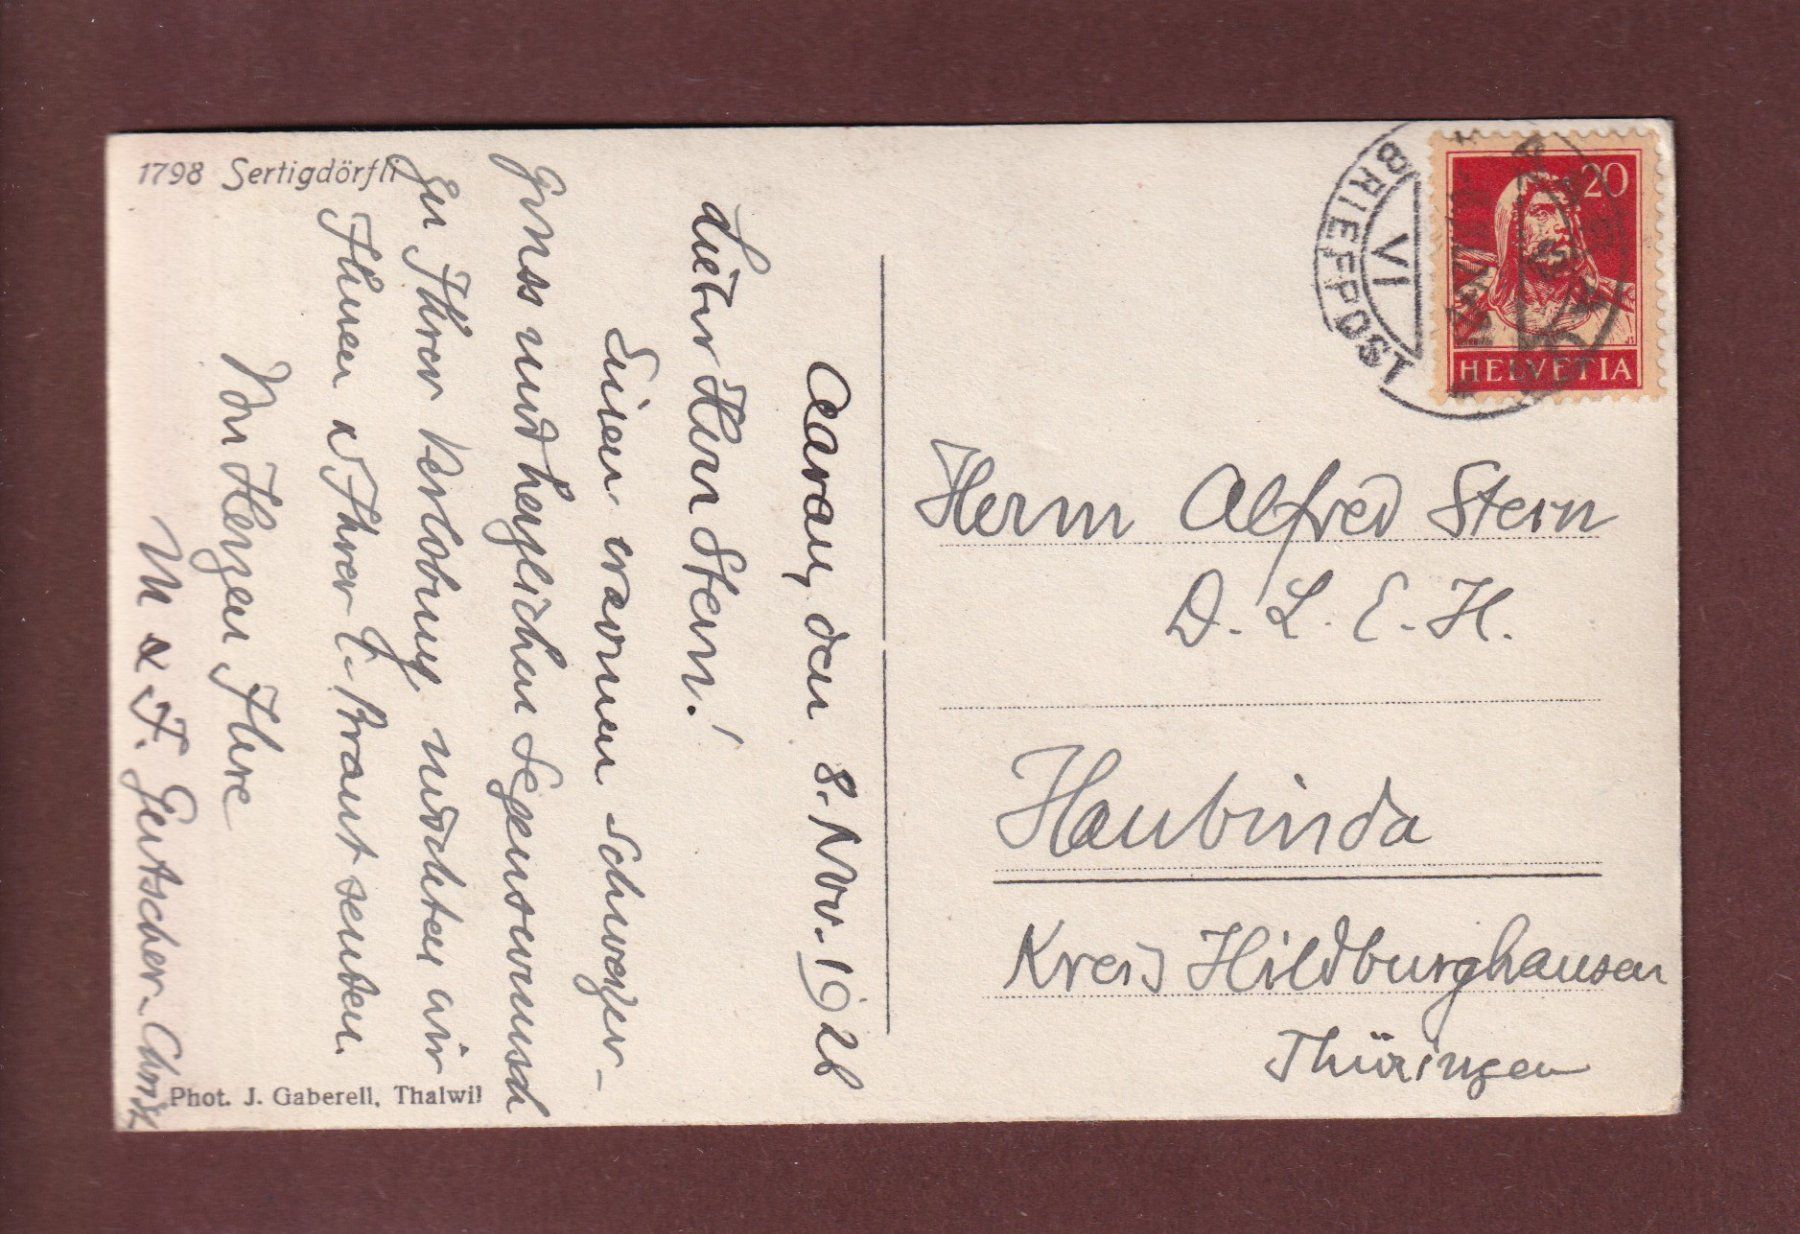 1798 Sertigdörfli
Aarau, den 8. Nov. 1926
Lieber Herr Stern!
Einen warmen Schweizer-
gruss und herzlichen Segenswunsch
zu Ihrer Verlobung möchten wir
Ihnen & Ihrer l. Braut senden.
Von Herzen Ihre
M & F.
Phot. J. Gaberell, Thalwil
BRIEFPOST
VI
20
HELVETIA
Herrn Alfred Stern
D. L. E. H.
Haubinda
Kreis Hildburghausen
Thüringen